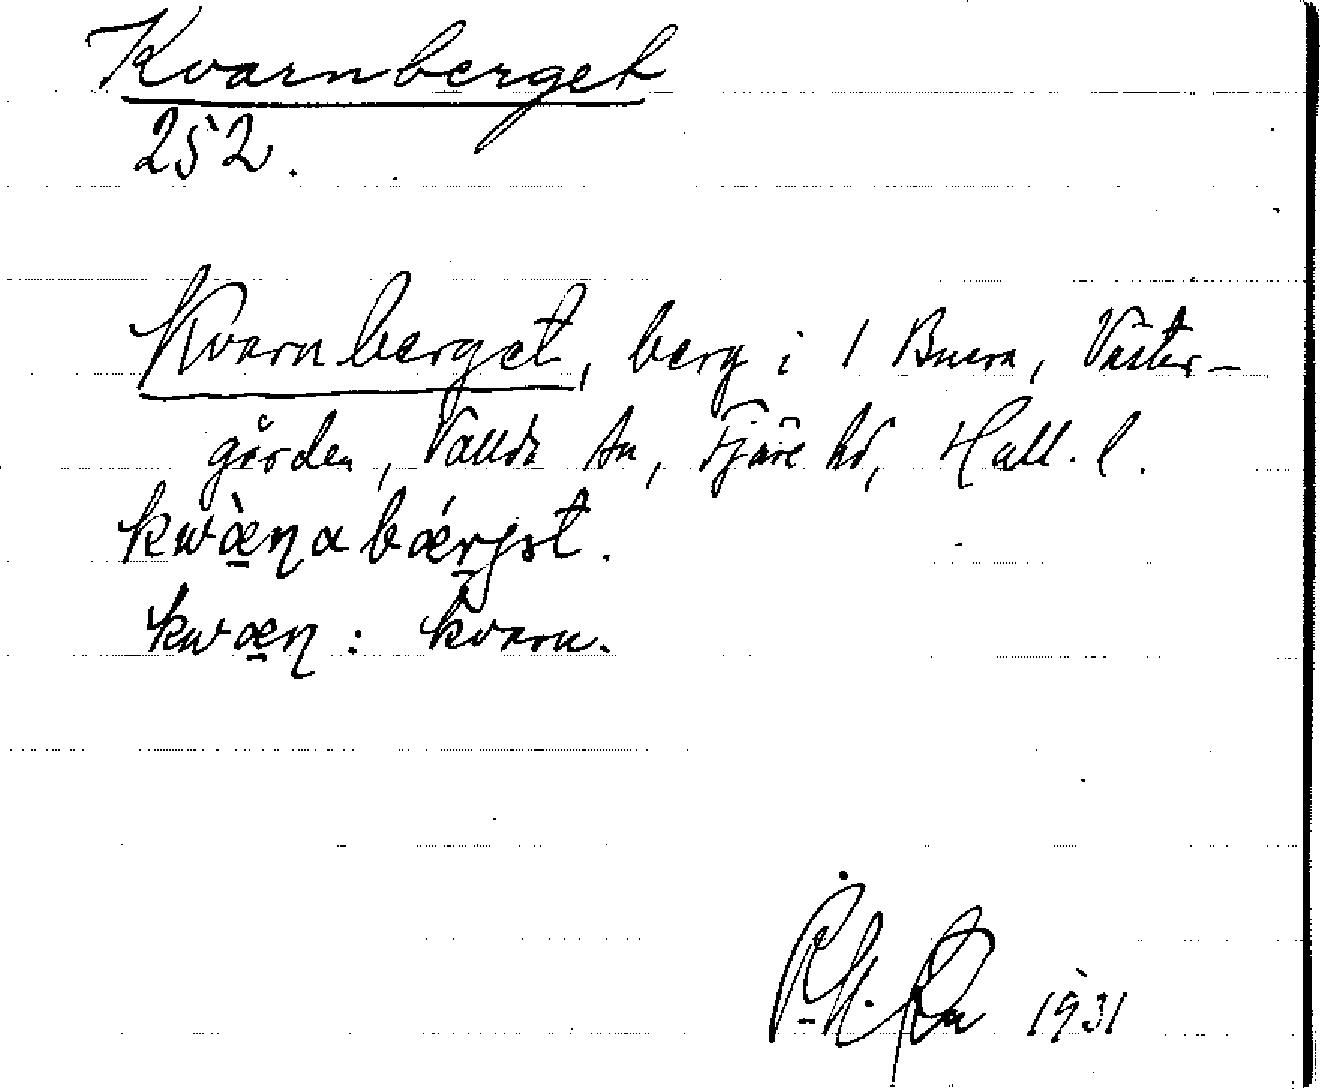 Kvarnberget
252.
Kvarnberget, berg i 1 Buera, Väster-
gården, Vallda sn, Fjäre hd, Hall. l.
kwæ̀ɳabǽrjət.
kwæɳ: kvarn.
1931